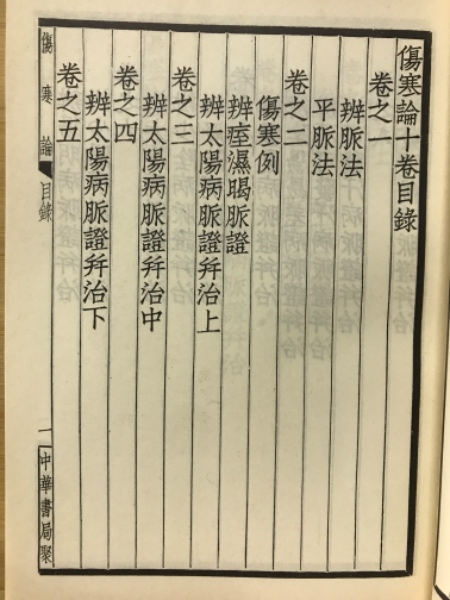 傷寒論十卷目錄
卷之一
辨脈法
平脈法
卷之二
傷寒例
辨痓濕暍脈證
卷之三
辨太陽病脈證幷治上
卷之四
辨太陽病脈證幷治中
卷之五
辨太陽病脈證幷治下
傷寒論 目錄 一 中華書局聚